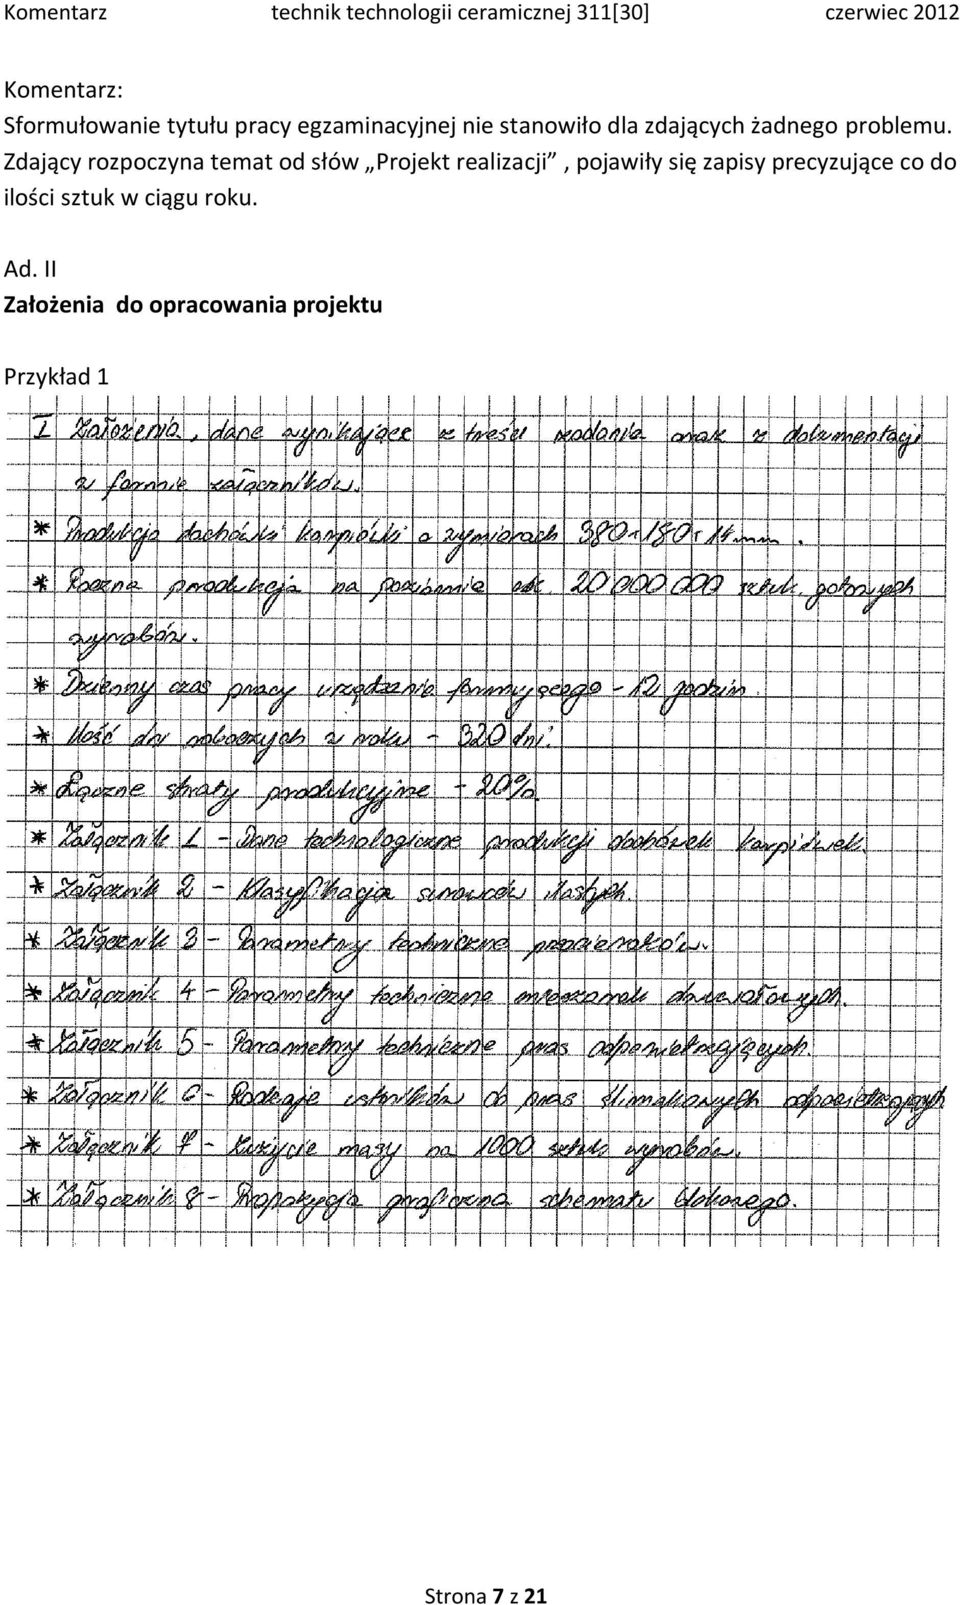 Komentarz technik technologii ceramicznej 311[30] czerwiec 2012
Komentarz:
Sformułowanie tytułu pracy egzaminacyjnej nie stanowiło dla zdających żadnego problemu.
Zdający rozpoczyna temat od słów „Projekt realizacji”, pojawiły się zapisy precyzujące co do
ilości sztuk w ciągu roku.
Ad. II
Założenia do opracowania projektu
Przykład 1
I Założenia, dane wynikające z treści zadania oraz z dokumentacji
w formie załączników.
* Produkcja dachówki karpiówki o wymiarach 380×180×14 mm.
* Roczna produkcja na poziomie ok. 20 000 000 sztuk gotowych
wyrobów.
* Dzienny czas pracy urządzenia formującego - 12 godzin.
* Ilość dni roboczych w roku - 320 dni.
* Łączne straty produkcyjne - 20%.
* Załącznik 1 - Dane technologiczne produkcji dachówek karpiówek.
* Załącznik 2 - Klasyfikacja surowców ilastych.
* Załącznik 3 - Parametry techniczne przecieraków.
* Załącznik 4 - Parametry techniczne mieszarek dwuwałowych.
* Załącznik 5 - Parametry techniczne pras odpowietrzających.
* Załącznik 6 - Rodzaje ustników do pras ślimakowych odpowietrzających
* Załącznik 7 - Zużycie masy na 1000 sztuk wyrobów.
* Załącznik 8 - Propozycja graficzna schematu blokowego.
Strona 7 z 21